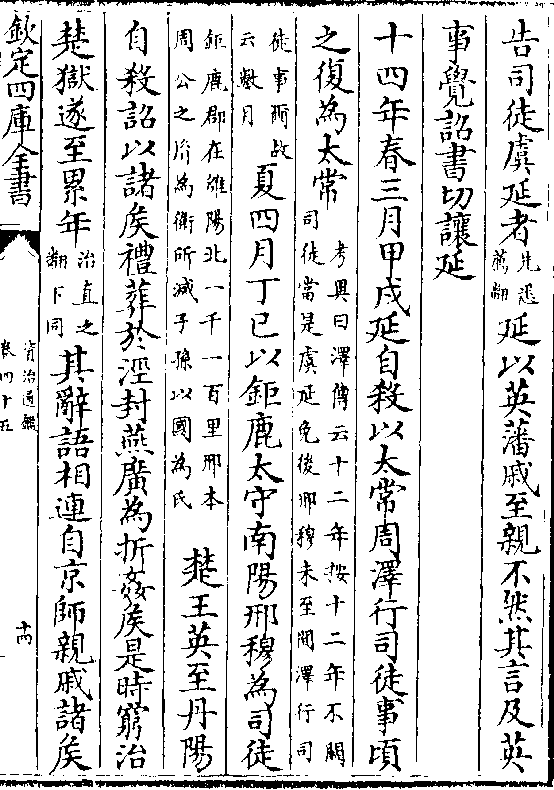 告司徒虞延者先悉薦翻延以英藩戚至親不然其言及英
事覺詔書切讓延
十四年春三月甲戌延自殺以太常周澤行司徒事頃
之復為太常考異曰澤傳云十二年按十二年不闕司徒當是虞延免後邢穆未至間澤行司
徒事爾故云數月夏四月丁巳以鉅鹿太守南陽邢穆為司徒
鉅鹿郡在雒陽北一千一百里邢本周公之胤為衛所滅子孫以國為氏楚王英至丹陽
自殺詔以諸侯禮葬於涇封燕廣為折姦侯是時窮治
楚獄遂至累年治直之翻下同其辭語相連自京師親戚諸侯
欽定四庫全書
資治通鑑
卷四十五
十四